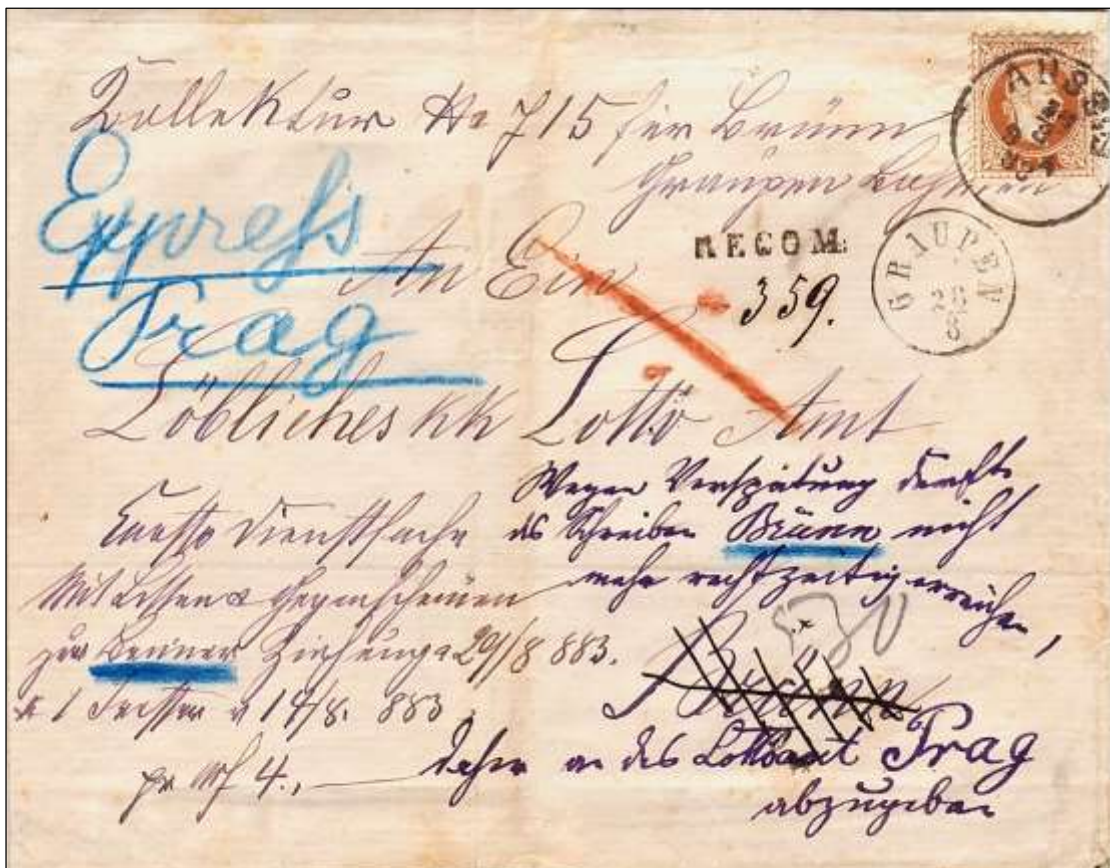 Kollektur No 715 für Brünn
Graupen Böhmen
Express
Prag
An Ein
RECOM:
359.
GRAUPEN
AUS
Löbliches kk Lotto Amt
Dienstsache
Mit Listen & Gegenscheinen
zur Brünner Ziehung a 29/8 883.
14/8. 883
4.
Wegen Verspätung dürfte
das Schreiben Brünn nicht
mehr rechtzeitig erreichen,
daher an das Lottoamt Prag
abzugeben